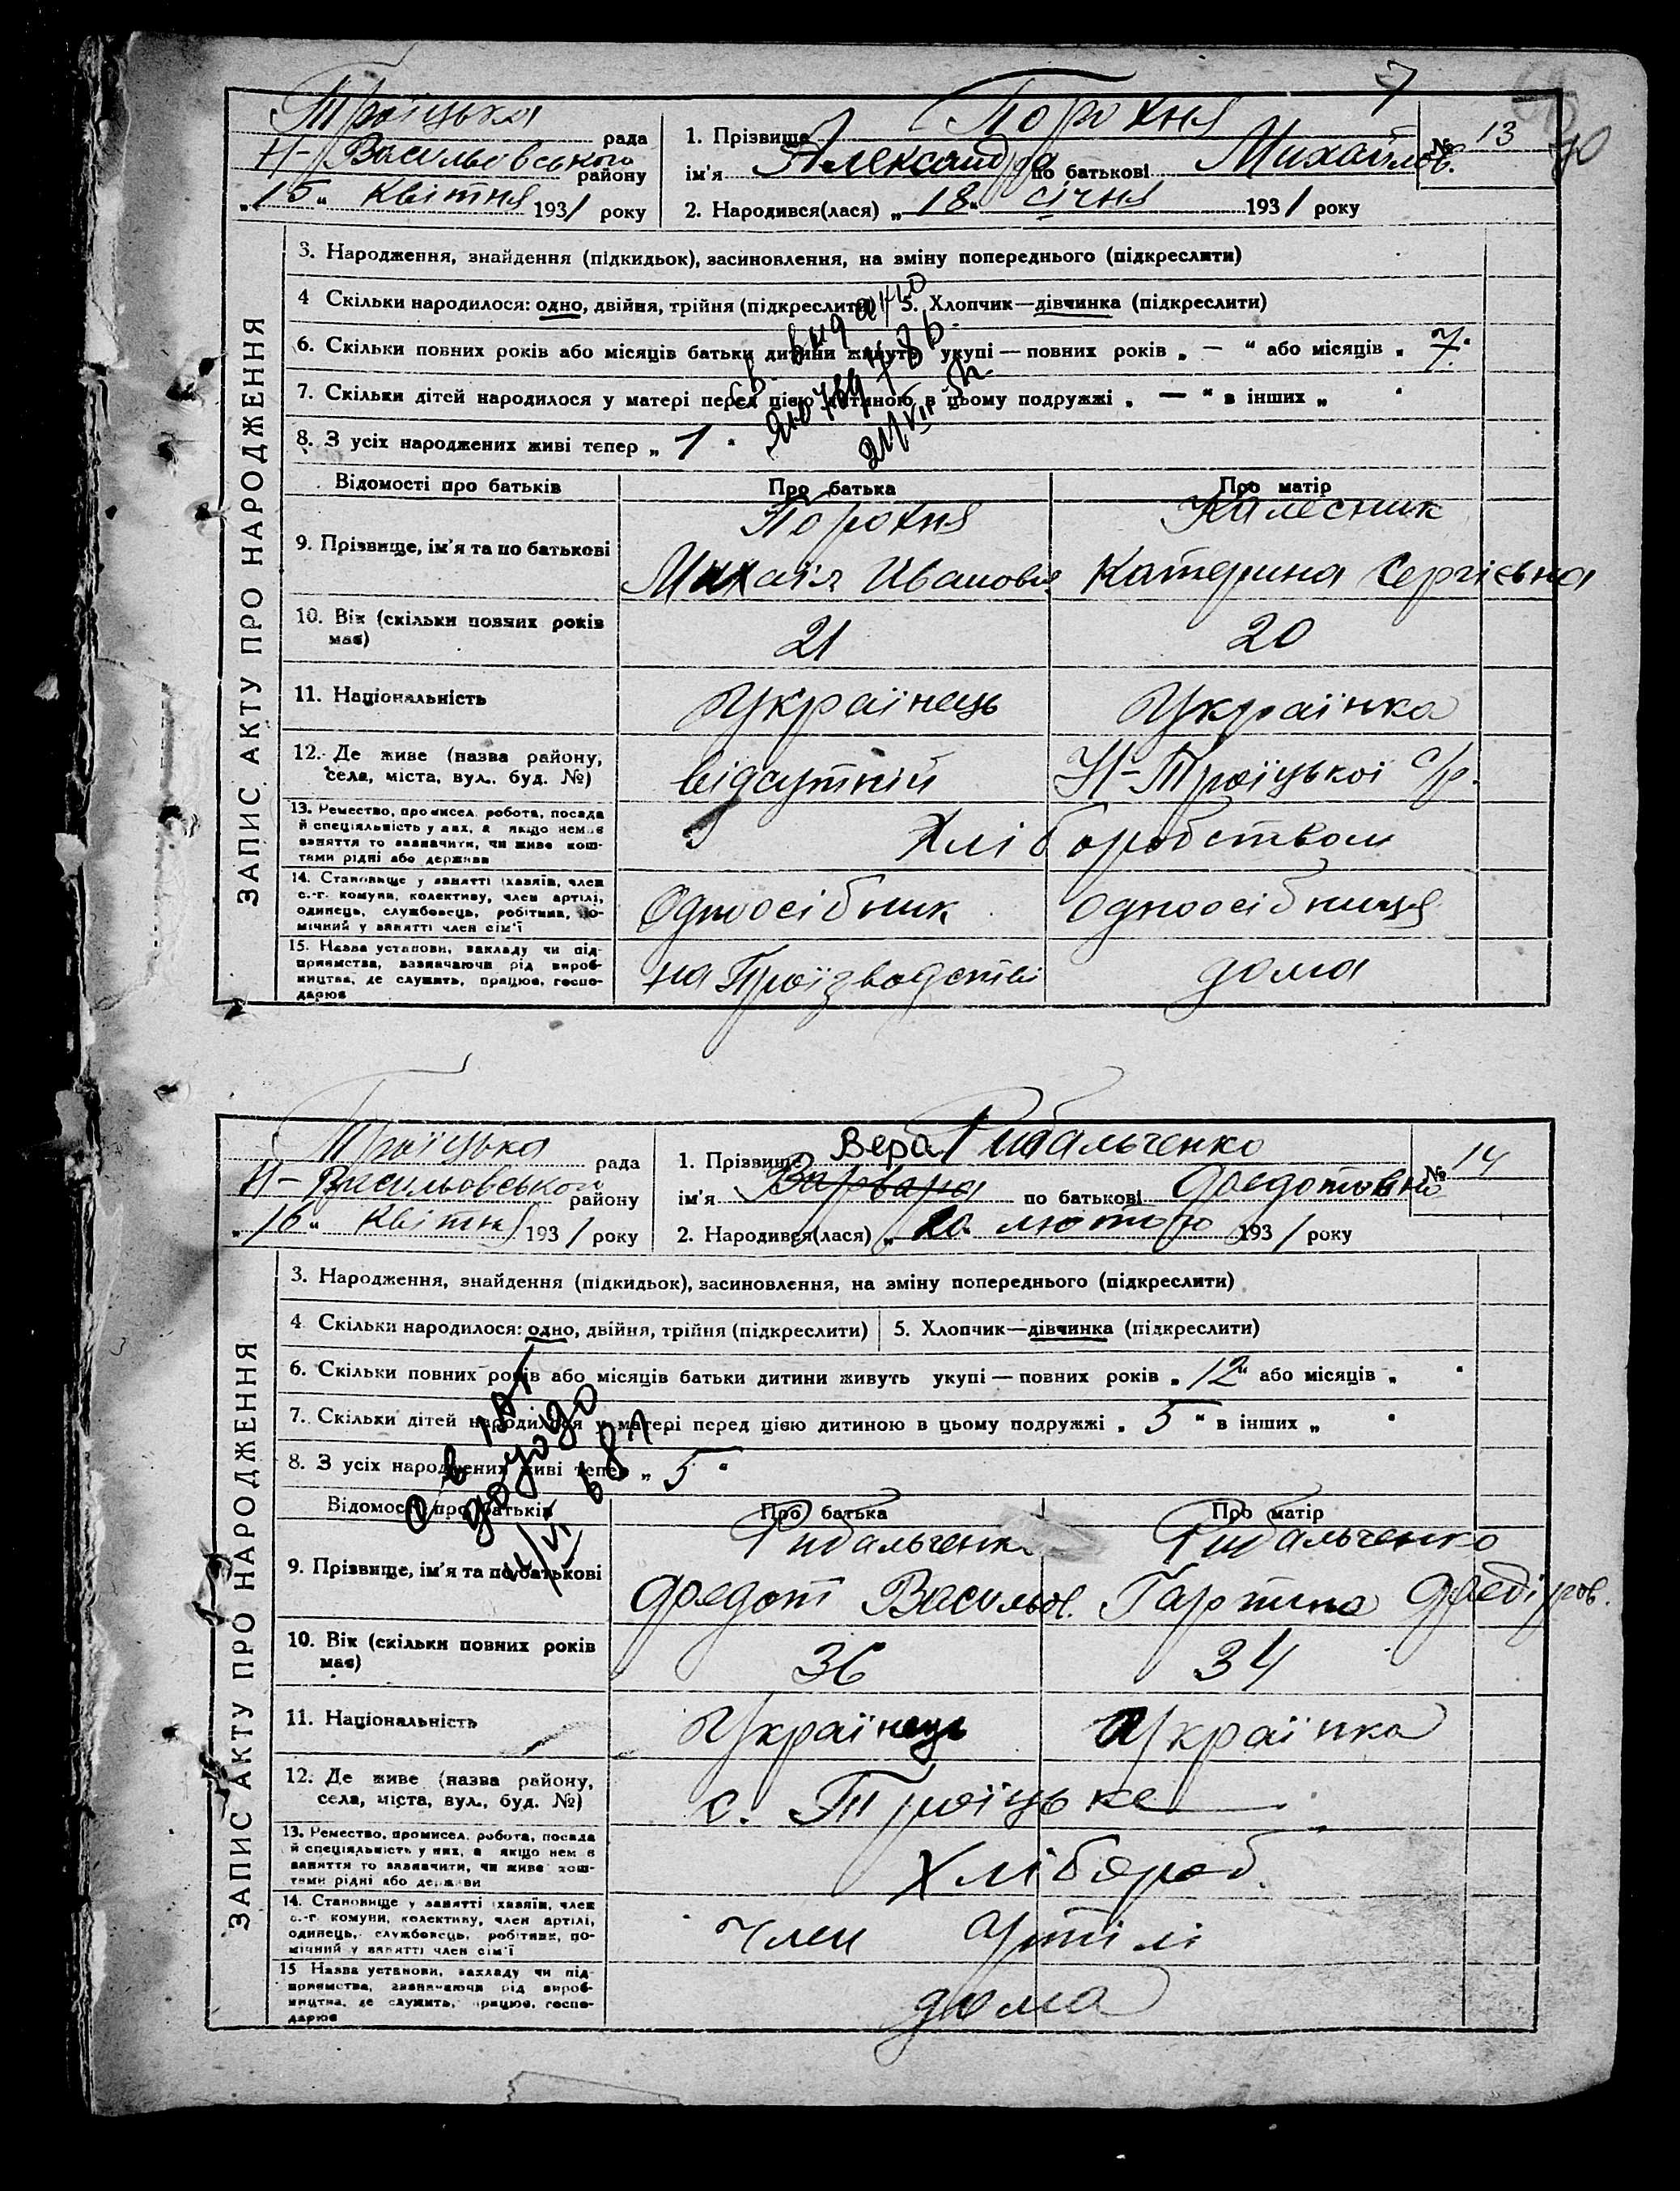 7
Троїцька рада
Н-Васильовського району
„15“ Квітня 1931 року
1. Прізвище Порохня
ім'я Александра по батькові Михайлов.
№ 13
2. Народився(лася) „18“ січня 1931 року
ЗАПИС АКТУ ПРО НАРОДЖЕННЯ
3. Народження, знайдення (підкидьок), засиновлення, на зміну попереднього (підкреслити)
4 Скільки народилося: одно, двійня, трійня (підкреслити) 5. Хлопчик—дівчинка (підкреслити)
6. Скільки повних років або місяців батьки дитини живуть укупі — повних років „ — “ або місяців „ 7.
7. Скільки дітей народилося у матері перед цією дитиною в цьому подружжі „ — “ в інших „ “
8. З усіх народжених живі тепер „ 1 “
Відомості про батьків Про батька Про матір
9. Прізвище, ім'я та по батькові
Порохня
Михаіл Иванович
Калесник
Катерина Сергієвна
10. Вік (скільки повних років має) 21 20
11. Національність Українець Українка
12. Де живе (назва району, села, міста, вул. буд. №) відсутній Н-Троїцької с/р.
13. Ремество, промисел, робота, посада
й спеціяльність у них, а якщо немає
заняття то зазначити, чи живе кош-
тами рідні або держави
Хліборобством
14. Становище у занятті (хазяїн, член
с.-г. комуни, колективу, член артілі,
одинець, службовець, робітник, по-
мічний у занятті член сім'ї
Одноосібник Одноосібниця
15. Назва установи, закладу чи під-
приємства, зазначаючи рід вироб-
ництва, де служить, працює, госпо-
дарює
на Проізводстві дома
Троїцька рада
Н-Васильовського району
„16“ Квітня 1931 року
1. Прізвище Рибальченко
Вера
ім'я Варвара по батькові Федотовна
№ 14
2. Народився(лася) „20“ лютого 1931 року
ЗАПИС АКТУ ПРО НАРОДЖЕННЯ
3. Народження, знайдення (підкидьок), засиновлення, на зміну попереднього (підкреслити)
4 Скільки народилося: одно, двійня, трійня (підкреслити) 5. Хлопчик—дівчинка (підкреслити)
6. Скільки повних років або місяців батьки дитини живуть укупі — повних років „12“ або місяців „ “
7. Скільки дітей народилося у матері перед цією дитиною в цьому подружжі „ 5 “ в інших „ “
8. З усіх народжених живі тепер „ 5 “
Відомості про батьків Про батька Про матір
9. Прізвище, ім'я та по батькові
Рибальченко
Федот Васильов.
Рибальченко
Гартина
10. Вік (скільки повних років має) 36 34
11. Національність Українець Українка
12. Де живе (назва району, села, міста, вул., буд. №) с. Троїцьке
13. Ремество, промисел, робота, посада
й спеціяльність у них, а якщо нема
заняття то зазначити, чи живе кош-
тами рідні або держави
Хлібороб
14. Становище у занятті (хазяїн, член
с.-г. комуни, колективу, член артілі,
одинець, службовець, робітник, по-
мічний у занятті член сім'ї
Член Артілі
15 Назва установи, закладу чи під-
приємства, зазначаючи рід вироб-
ництва, де служить, працює, госпо-
дарює
дома